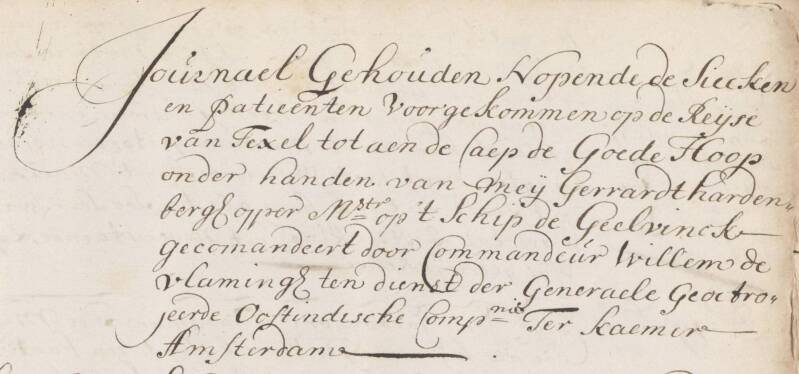 Journael Gehouden Nopende de Siecken
en patieenten Voorgekommen op de Reijse
van Texel tot aen de Caep de Goede Hoop
onder handen van meij Gerrardt harden„
bergh opper Mstr op 't Schip de Geelvinck
gecomandeert door Commandeur Willem de
Vlamingh ten dienst der Generaele Geoctro„
jeerde Oostindische Compnie Ter kaemer
Amsterdam